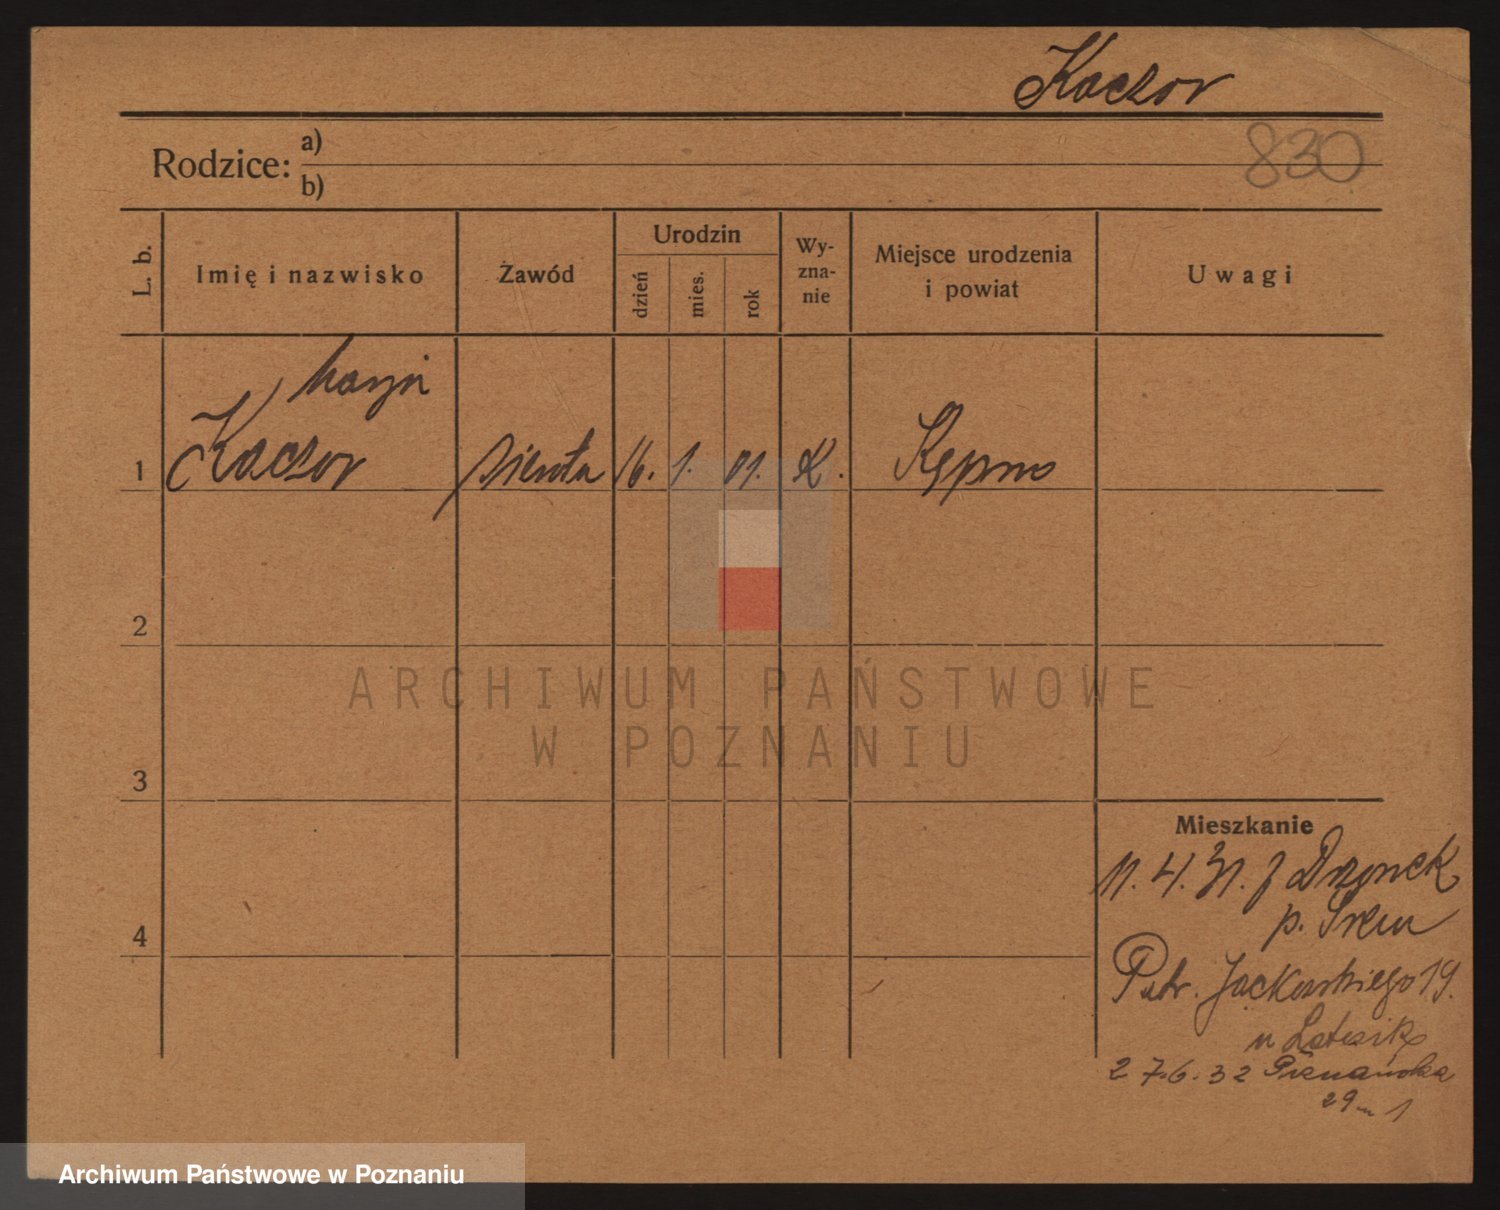 Kaczor
830
Rodzice: a)
b)
L. b.
Imię i nazwisko
Zawód
Urodzin
dzień
mies.
rok
Wy-
zna-
nie
Miejsce urodzenia
i powiat
Uwagi
1
Kaczor
16. 1. 01. K.
Kępno
2
3
4
Mieszkanie
11. 4. 31. z
p. Śrem
Jackowskiego 19.
27.6.32 Poznańska
29 m 1
ARCHIWUM PAŃSTWOWE
W POZNANIU
Archiwum Państwowe w Poznaniu